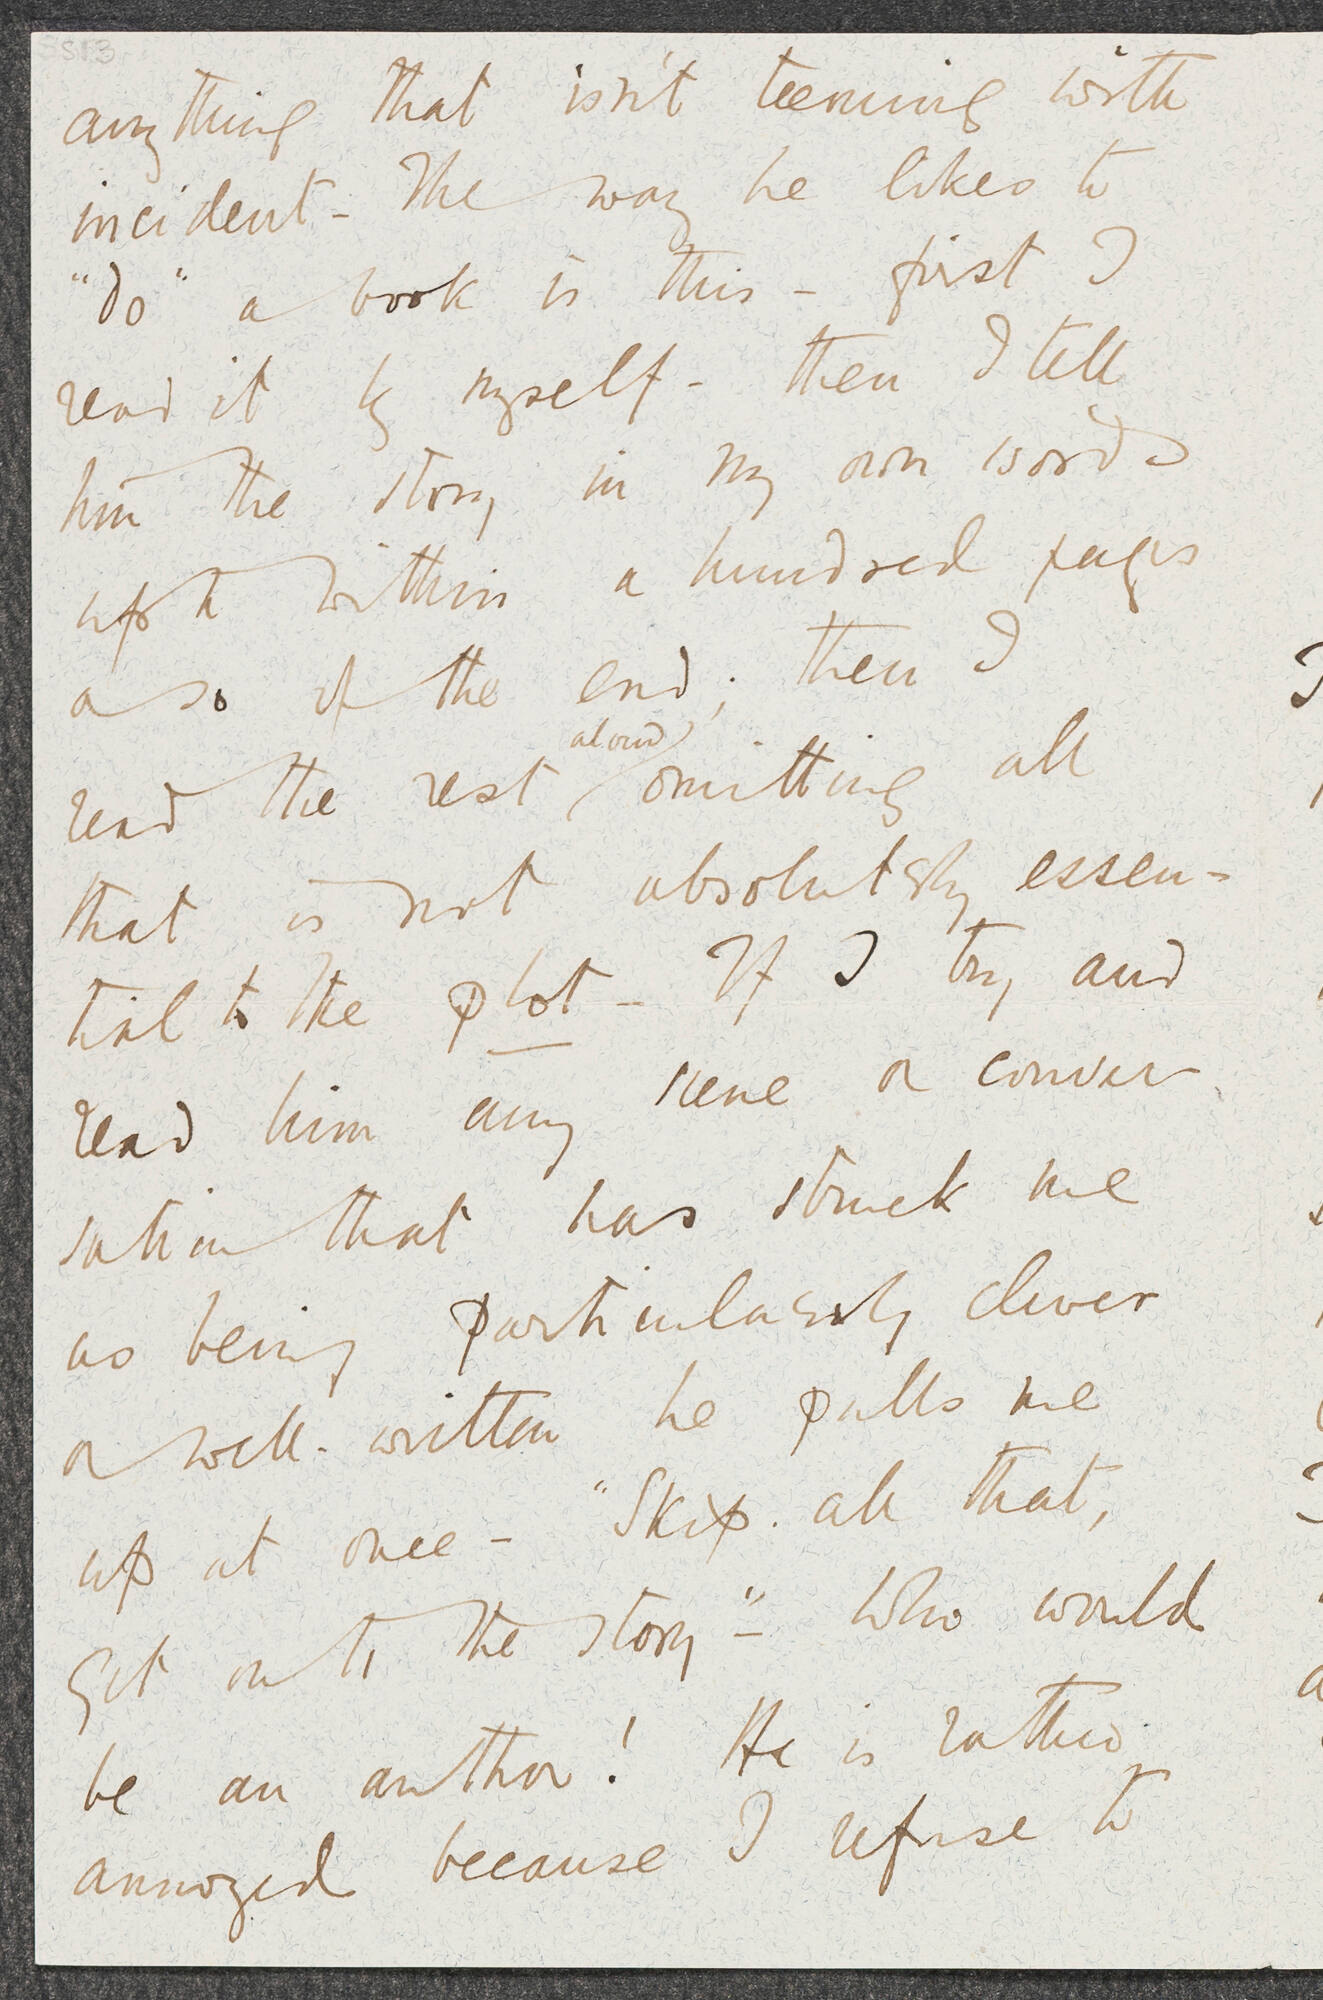 anything that isn't teeming with
incident - The way he likes to
"do" a book is this - first I
read it by myself - then I tell
him the story in my own words
up to within a hundred pages
or so of the end; then I
aloud
read the rest omitting all
that is not absolutely essen-
tial to the plot - If I try and
read him any scene or conver-
sation that has struck me
as being particularly clever
or well-written he pulls me
up at once - "Skip all that,
get on to the story" - Who would
be an author! He is rather
annoyed because I refuse to